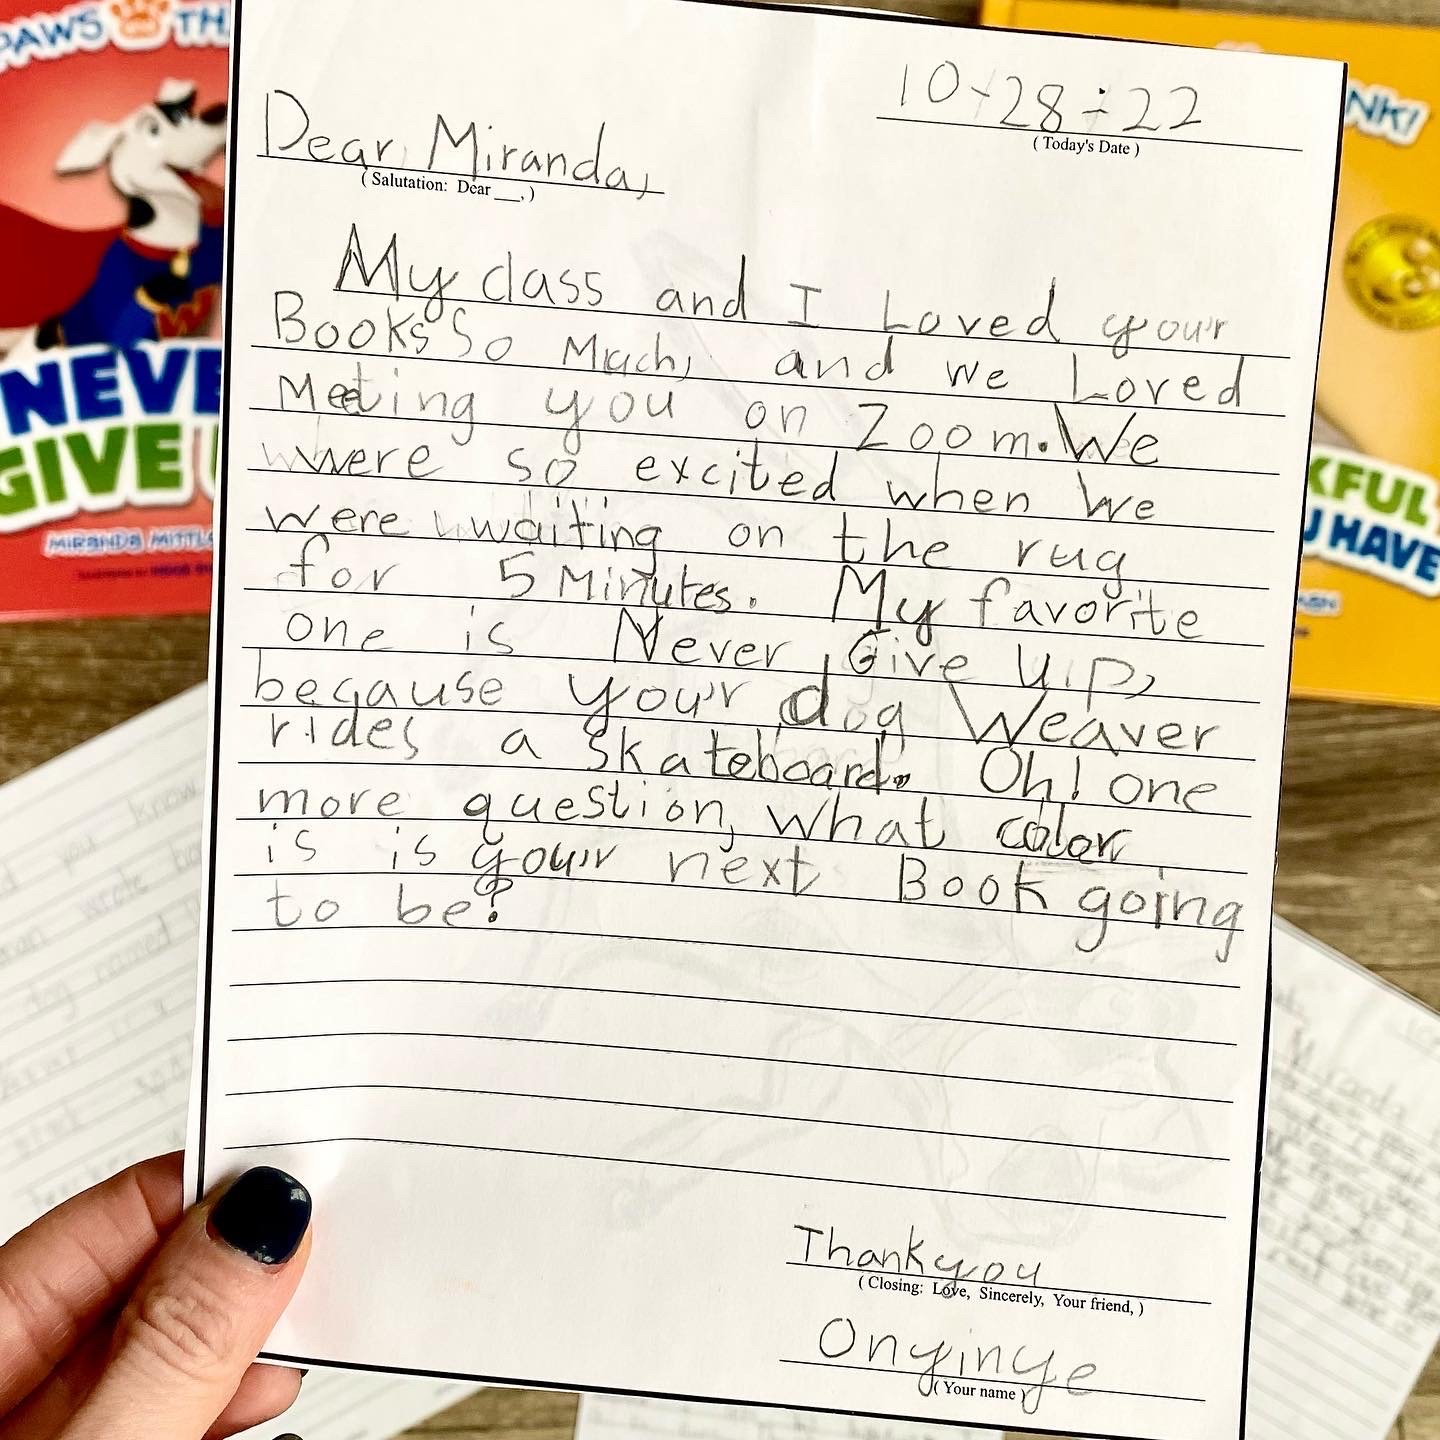 PAWS
NEVE
GIVE
MIRANDA MITTL
NK!
KFUL
U HAVE
10-28-22
( Today's Date )
Dear Miranda,
( Salutation: Dear ___, )
My class and I Loved your
Books So Much, and we Loved
Meeting you on Zoom. We
were so excited when We
were waiting on the rug
for 5 Minutes. My favorite
one is Never Give Up,
because your dog Weaver
rides a skateboard. Oh! one
more question, what color
is is your next Book going
to be?
Thankyou
( Closing: Love, Sincerely, Your friend, )
Onyinye
( Your name )
you know
wrote
dog named
Miranda